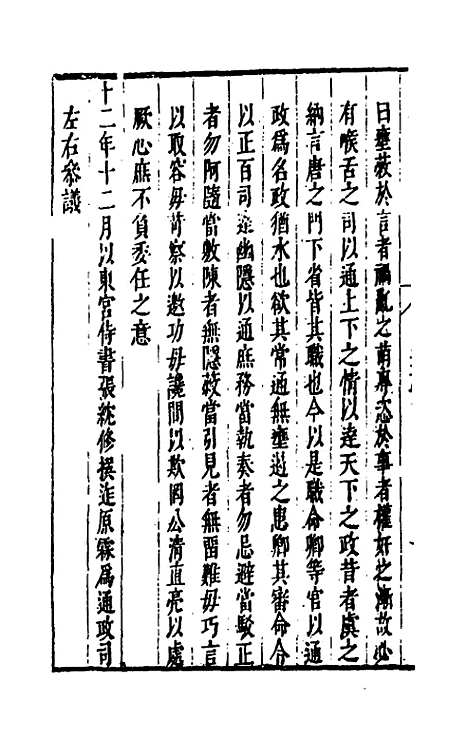 曰壅蔽於言者禍亂之萌專恣於事者權奸之漸故必
有喉舌之司以通上下之情以達天下之政昔者虞之
納言唐之門下省皆其職也今以是職命卿等官以通
政爲名政猶水也欲其常通無壅遏之患卿其審命令
以正百司達幽隱以通庶務當執奏者勿忌避當駁正
者勿阿隨當敷陳者無隱蔽當引見者無留難毋巧言
以取容毋苛察以邀功毋讒間以欺罔公清直亮以處
厥心庶不負委任之意
十二年十二月以東宮侍書張紞修撰進原霖爲通政司
左右參議